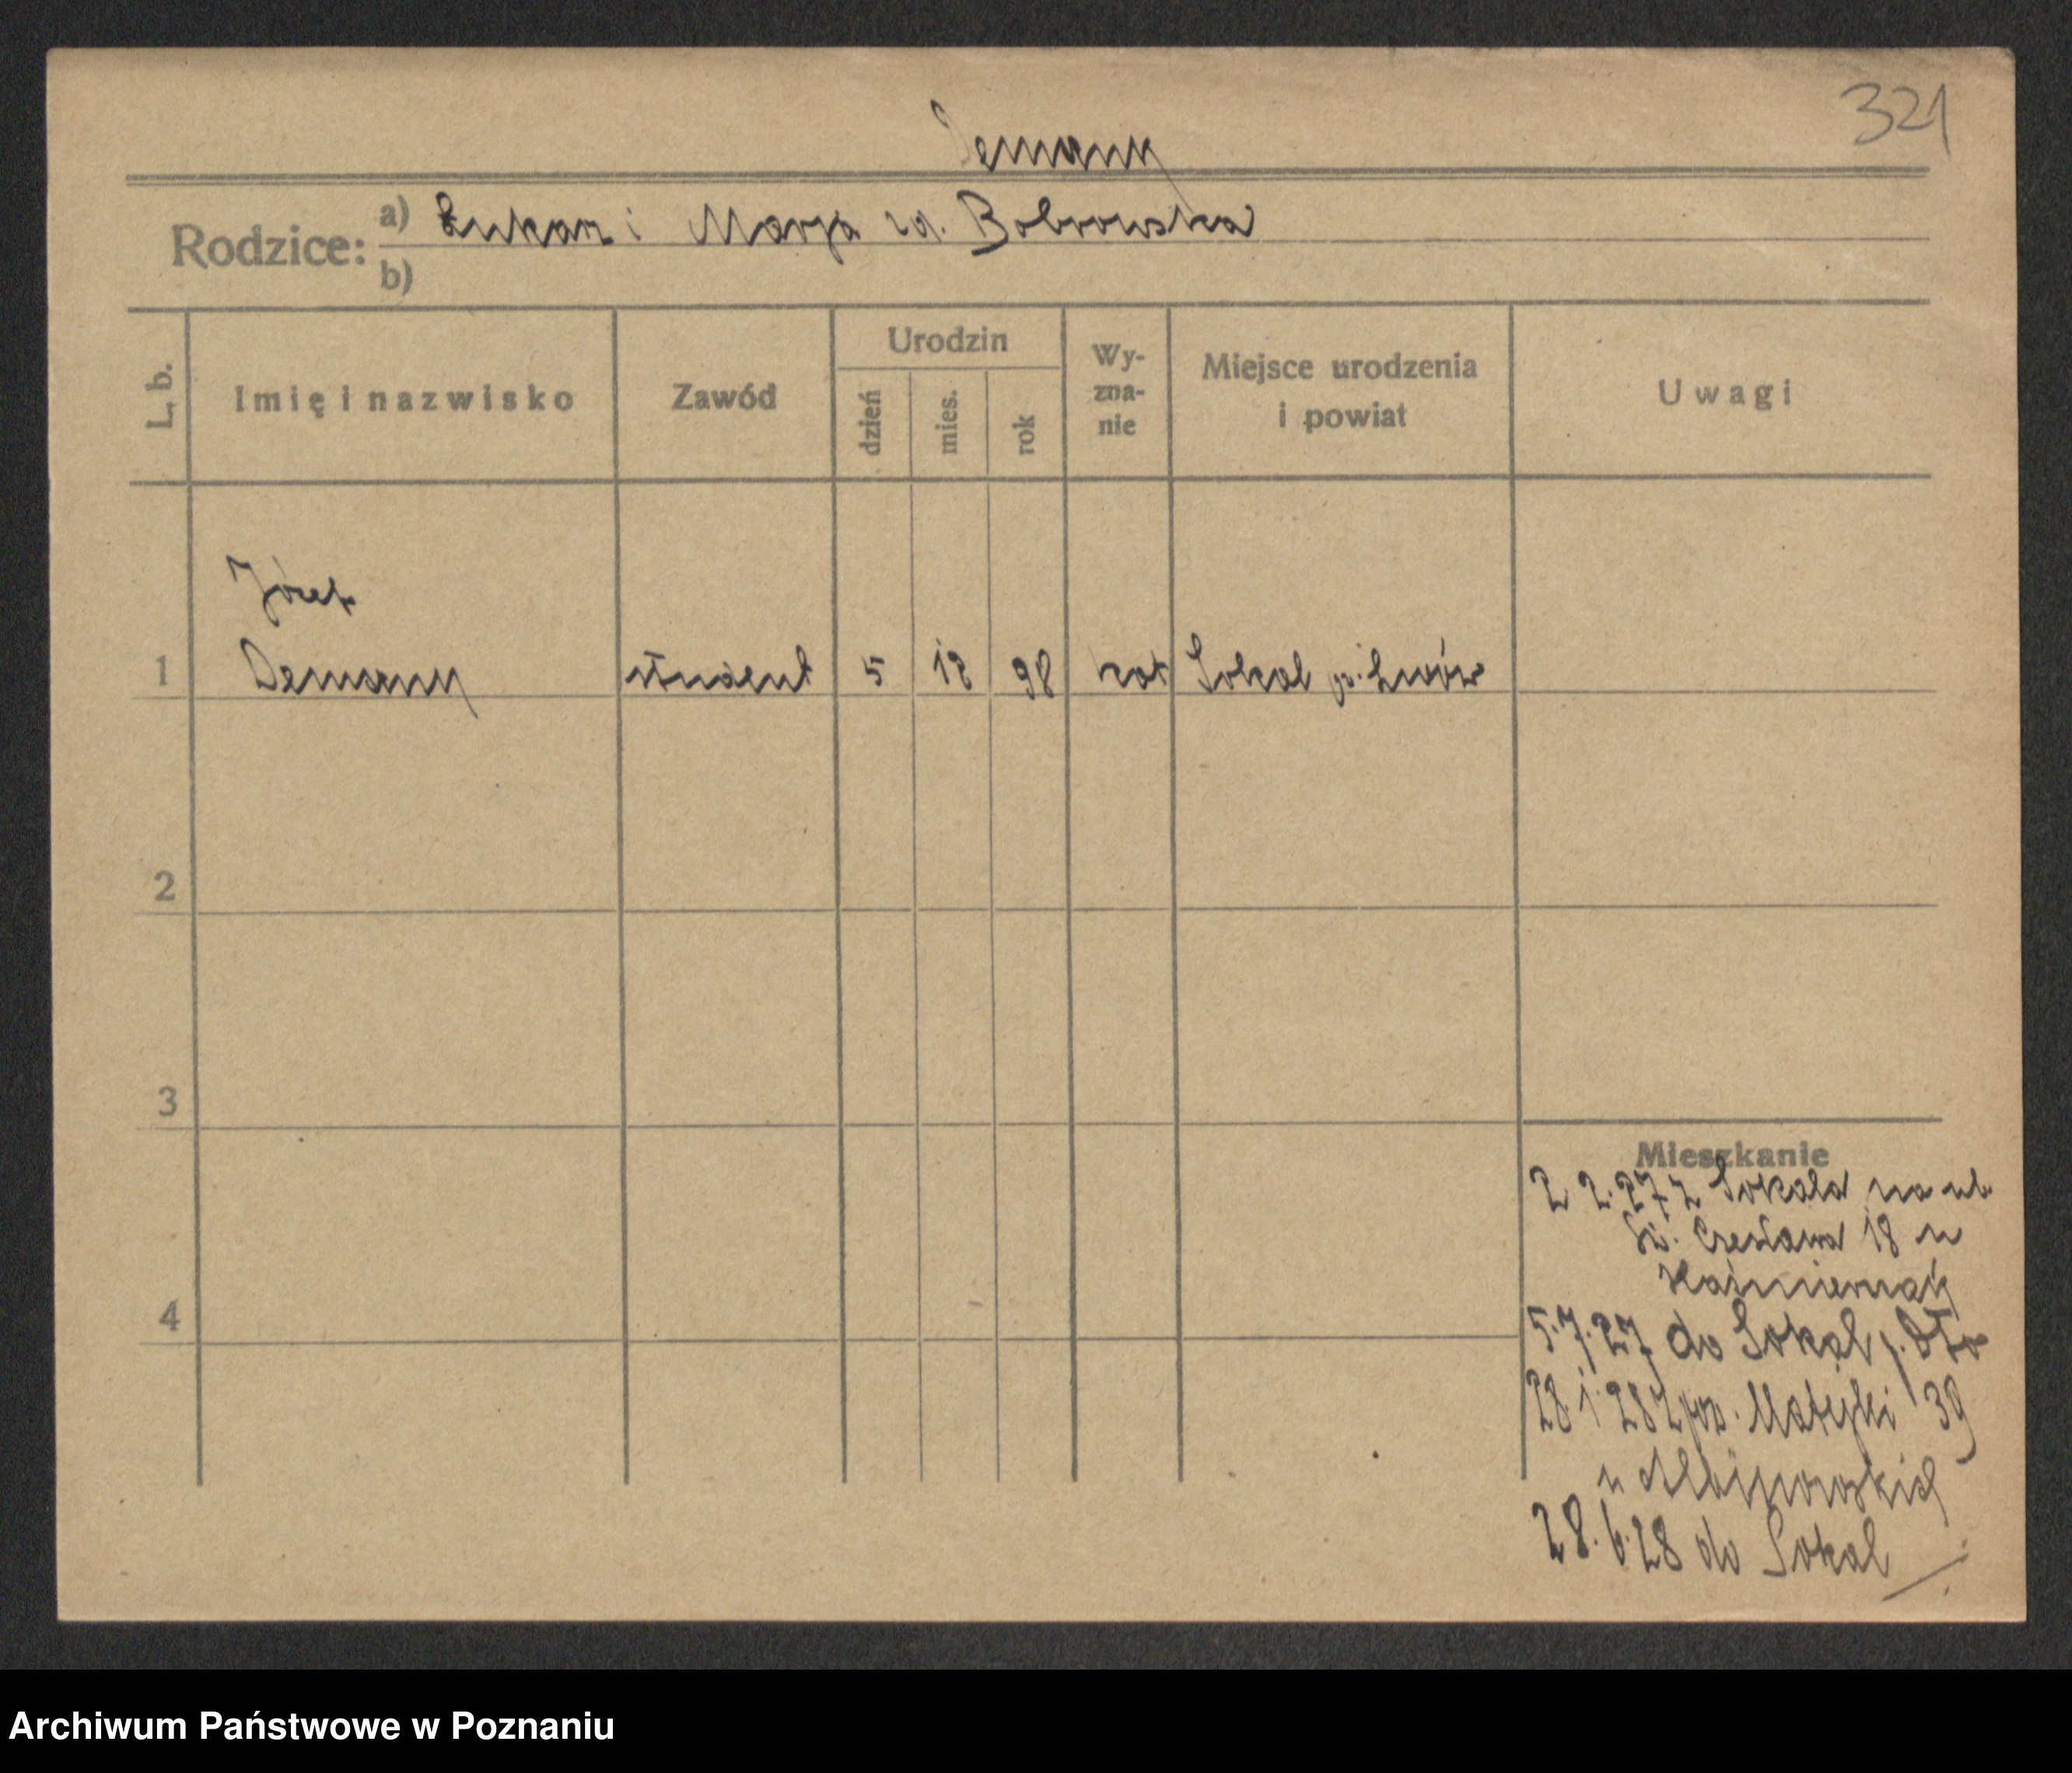 321
Demany
Rodzice: a) Łukasz i Marja zd. Bobrowska
b)
L. b.
Imię i nazwisko
Zawód
Urodzin
dzień
mies.
rok
Wy-
zna-
nie
Miejsce urodzenia
i powiat
Uwagi
Józef
1 Demany student 5 12 98 kat Sokal p. Lwów
2
3
4
Mieszkanie
2 2.27 z Sokala na ul.
Św. Czesława 18 u
5.7.27 do Sokal
28.1.28 Matejki 39
u
28.6.28 do Sokal
Archiwum Państwowe w Poznaniu